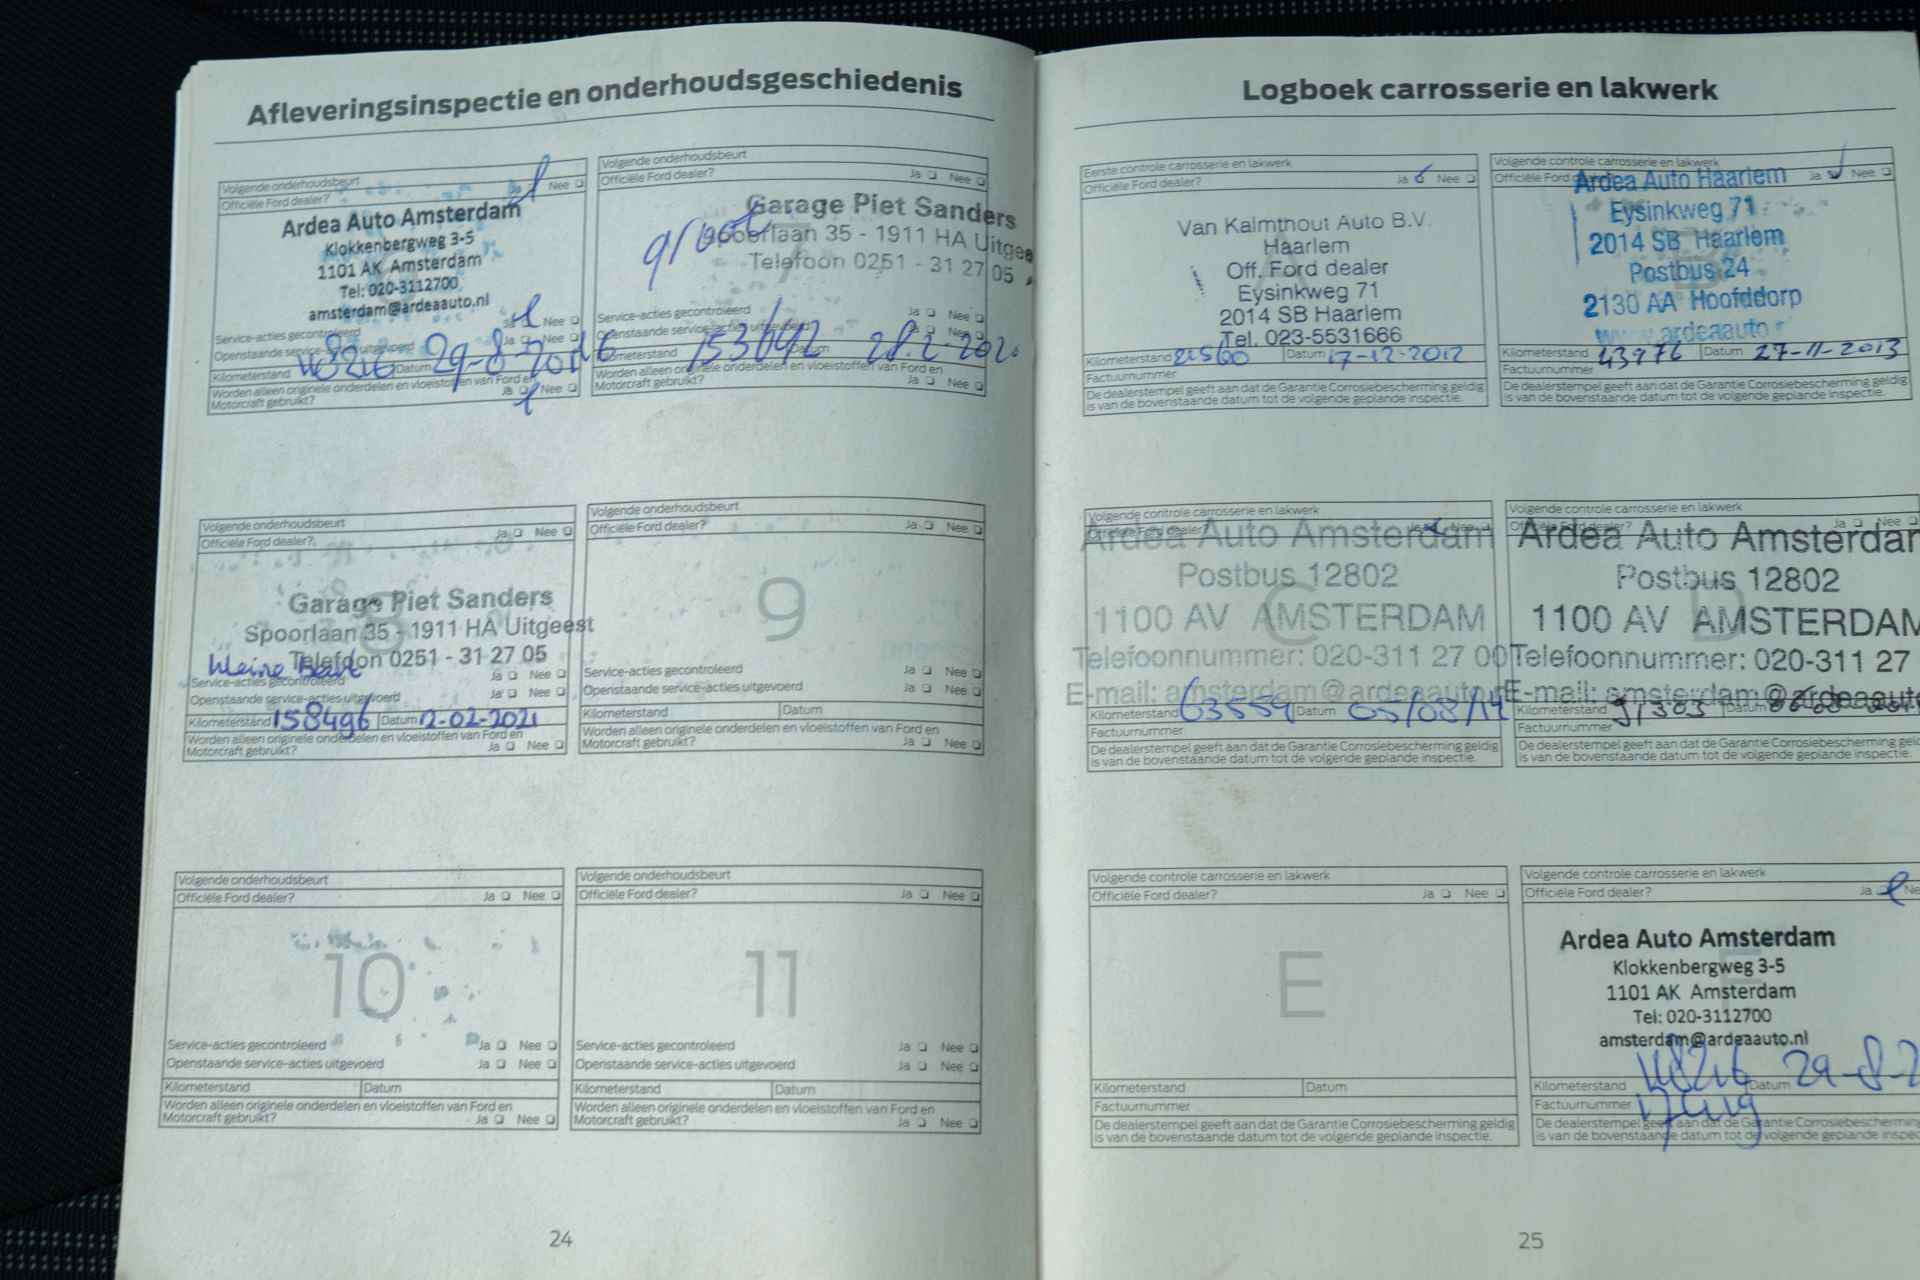 Afleveringsinspectie en onderhoudsgeschiedenis
Volgende onderhoudsbeurt
Officiële Ford dealer? Ja Nee
Ardea Auto Amsterdam
Klokkenbergweg 3-5
1101 AK Amsterdam
Tel: 020-3112700
amsterdam@ardeaauto.nl
Service-acties gecontroleerd Ja Nee
Openstaande service-acties uitgevoerd Ja Nee
Kilometerstand Datum 29-8-2016
Worden alleen originele onderdelen en vloeistoffen van Ford en
Motorcraft gebruikt? Ja Nee
Volgende onderhoudsbeurt
Officiële Ford dealer? Ja Nee
Garage Piet Sanders
groot Spoorlaan 35 - 1911 HA Uitgeest
Telefoon 0251 - 31 27 05
Service-acties gecontroleerd Ja Nee
Openstaande service-acties uitgevoerd Ja Nee
Kilometerstand 153642 Datum 28-2-2020
Worden alleen originele onderdelen en vloeistoffen van Ford en
Motorcraft gebruikt? Ja Nee
Volgende onderhoudsbeurt
Officiële Ford dealer? Ja Nee
8
Garage Piet Sanders
Spoorlaan 35 - 1911 HA Uitgeest
Telefoon 0251 - 31 27 05
kleine Beurt
Service-acties gecontroleerd Ja Nee
Openstaande service-acties uitgevoerd Ja Nee
Kilometerstand 158496 Datum 12-02-2021
Worden alleen originele onderdelen en vloeistoffen van Ford en
Motorcraft gebruikt? Ja Nee
Volgende onderhoudsbeurt
Officiële Ford dealer? Ja Nee
9
Service-acties gecontroleerd Ja Nee
Openstaande service-acties uitgevoerd Ja Nee
Kilometerstand Datum
Worden alleen originele onderdelen en vloeistoffen van Ford en
Motorcraft gebruikt? Ja Nee
Volgende onderhoudsbeurt
Officiële Ford dealer? Ja Nee
10
Service-acties gecontroleerd Ja Nee
Openstaande service-acties uitgevoerd Ja Nee
Kilometerstand Datum
Worden alleen originele onderdelen en vloeistoffen van Ford en
Motorcraft gebruikt? Ja Nee
Volgende onderhoudsbeurt
Officiële Ford dealer? Ja Nee
11
Service-acties gecontroleerd Ja Nee
Openstaande service-acties uitgevoerd Ja Nee
Kilometerstand Datum
Worden alleen originele onderdelen en vloeistoffen van Ford en
Motorcraft gebruikt? Ja Nee
24
Logboek carrosserie en lakwerk
Eerste controle carrosserie en lakwerk
Officiële Ford dealer? Ja Nee
Van Kalmthout Auto B.V.
Haarlem
Off. Ford dealer
Eysinkweg 71
2014 SB Haarlem
Tel. 023-5531666
Kilometerstand Datum 17-12-2012
Factuurnummer
De dealerstempel geeft aan dat de Garantie Corrosiebescherming geldig
is van de bovenstaande datum tot de volgende geplande inspectie.
Volgende controle carrosserie en lakwerk
Officiële Ford Ja Nee
Ardea Auto Haarlem
Eysinkweg 71
2014 SB Haarlem
Postbus 24
2130 AA Hoofddorp
www.ardeaauto
Kilometerstand 43976 Datum 27-11-2013
Factuurnummer
De dealerstempel geeft aan dat de Garantie Corrosiebescherming geldig
is van de bovenstaande datum tot de volgende geplande inspectie.
Volgende controle carrosserie en lakwerk
Ardea Auto Amsterdam
Postbus 12802
C
1100 AV AMSTERDAM
Telefoonnummer: 020-311 27 00
E-mail: amsterdam@ardeaauto
Kilometerstand 63559 Datum 05/08/14
Factuurnummer
De dealerstempel geeft aan dat de Garantie Corrosiebescherming geldig
is van de bovenstaande datum tot de volgende geplande inspectie.
Volgende controle carrosserie en lakwerk
Ja Nee
Ardea Auto Amsterdam
Postbus 12802
D
1100 AV AMSTERDAM
Telefoonnummer: 020-311 27
E-mail: amsterdam@ardeaauto
Kilometerstand 91303 Datum
Factuurnummer
De dealerstempel geeft aan dat de Garantie Corrosiebescherming
is van de bovenstaande datum tot de volgende geplande inspectie.
Volgende controle carrosserie en lakwerk
Officiële Ford dealer? Ja Nee
E
Kilometerstand Datum
Factuurnummer
De dealerstempel geeft aan dat de Garantie Corrosiebescherming geldig
is van de bovenstaande datum tot de volgende geplande inspectie.
Volgende controle carrosserie en lakwerk
Officiële Ford dealer? Ja
Ardea Auto Amsterdam
Klokkenbergweg 3-5
1101 AK Amsterdam
Tel: 020-3112700
amsterdam@ardeaauto.nl
Kilometerstand Datum 29-8-2
Factuurnummer
De dealerstempel geeft aan dat de Garantie Corrosiebescherming
is van de bovenstaande datum tot de volgende geplande
25